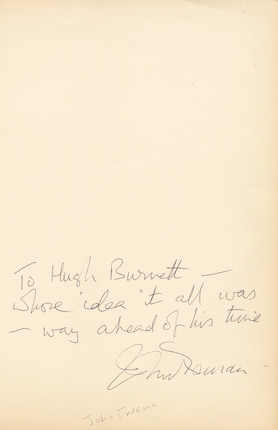 To Hugh Burnett –
whose 'idea' it all was
– way ahead of his time
John Freeman
John Freeman